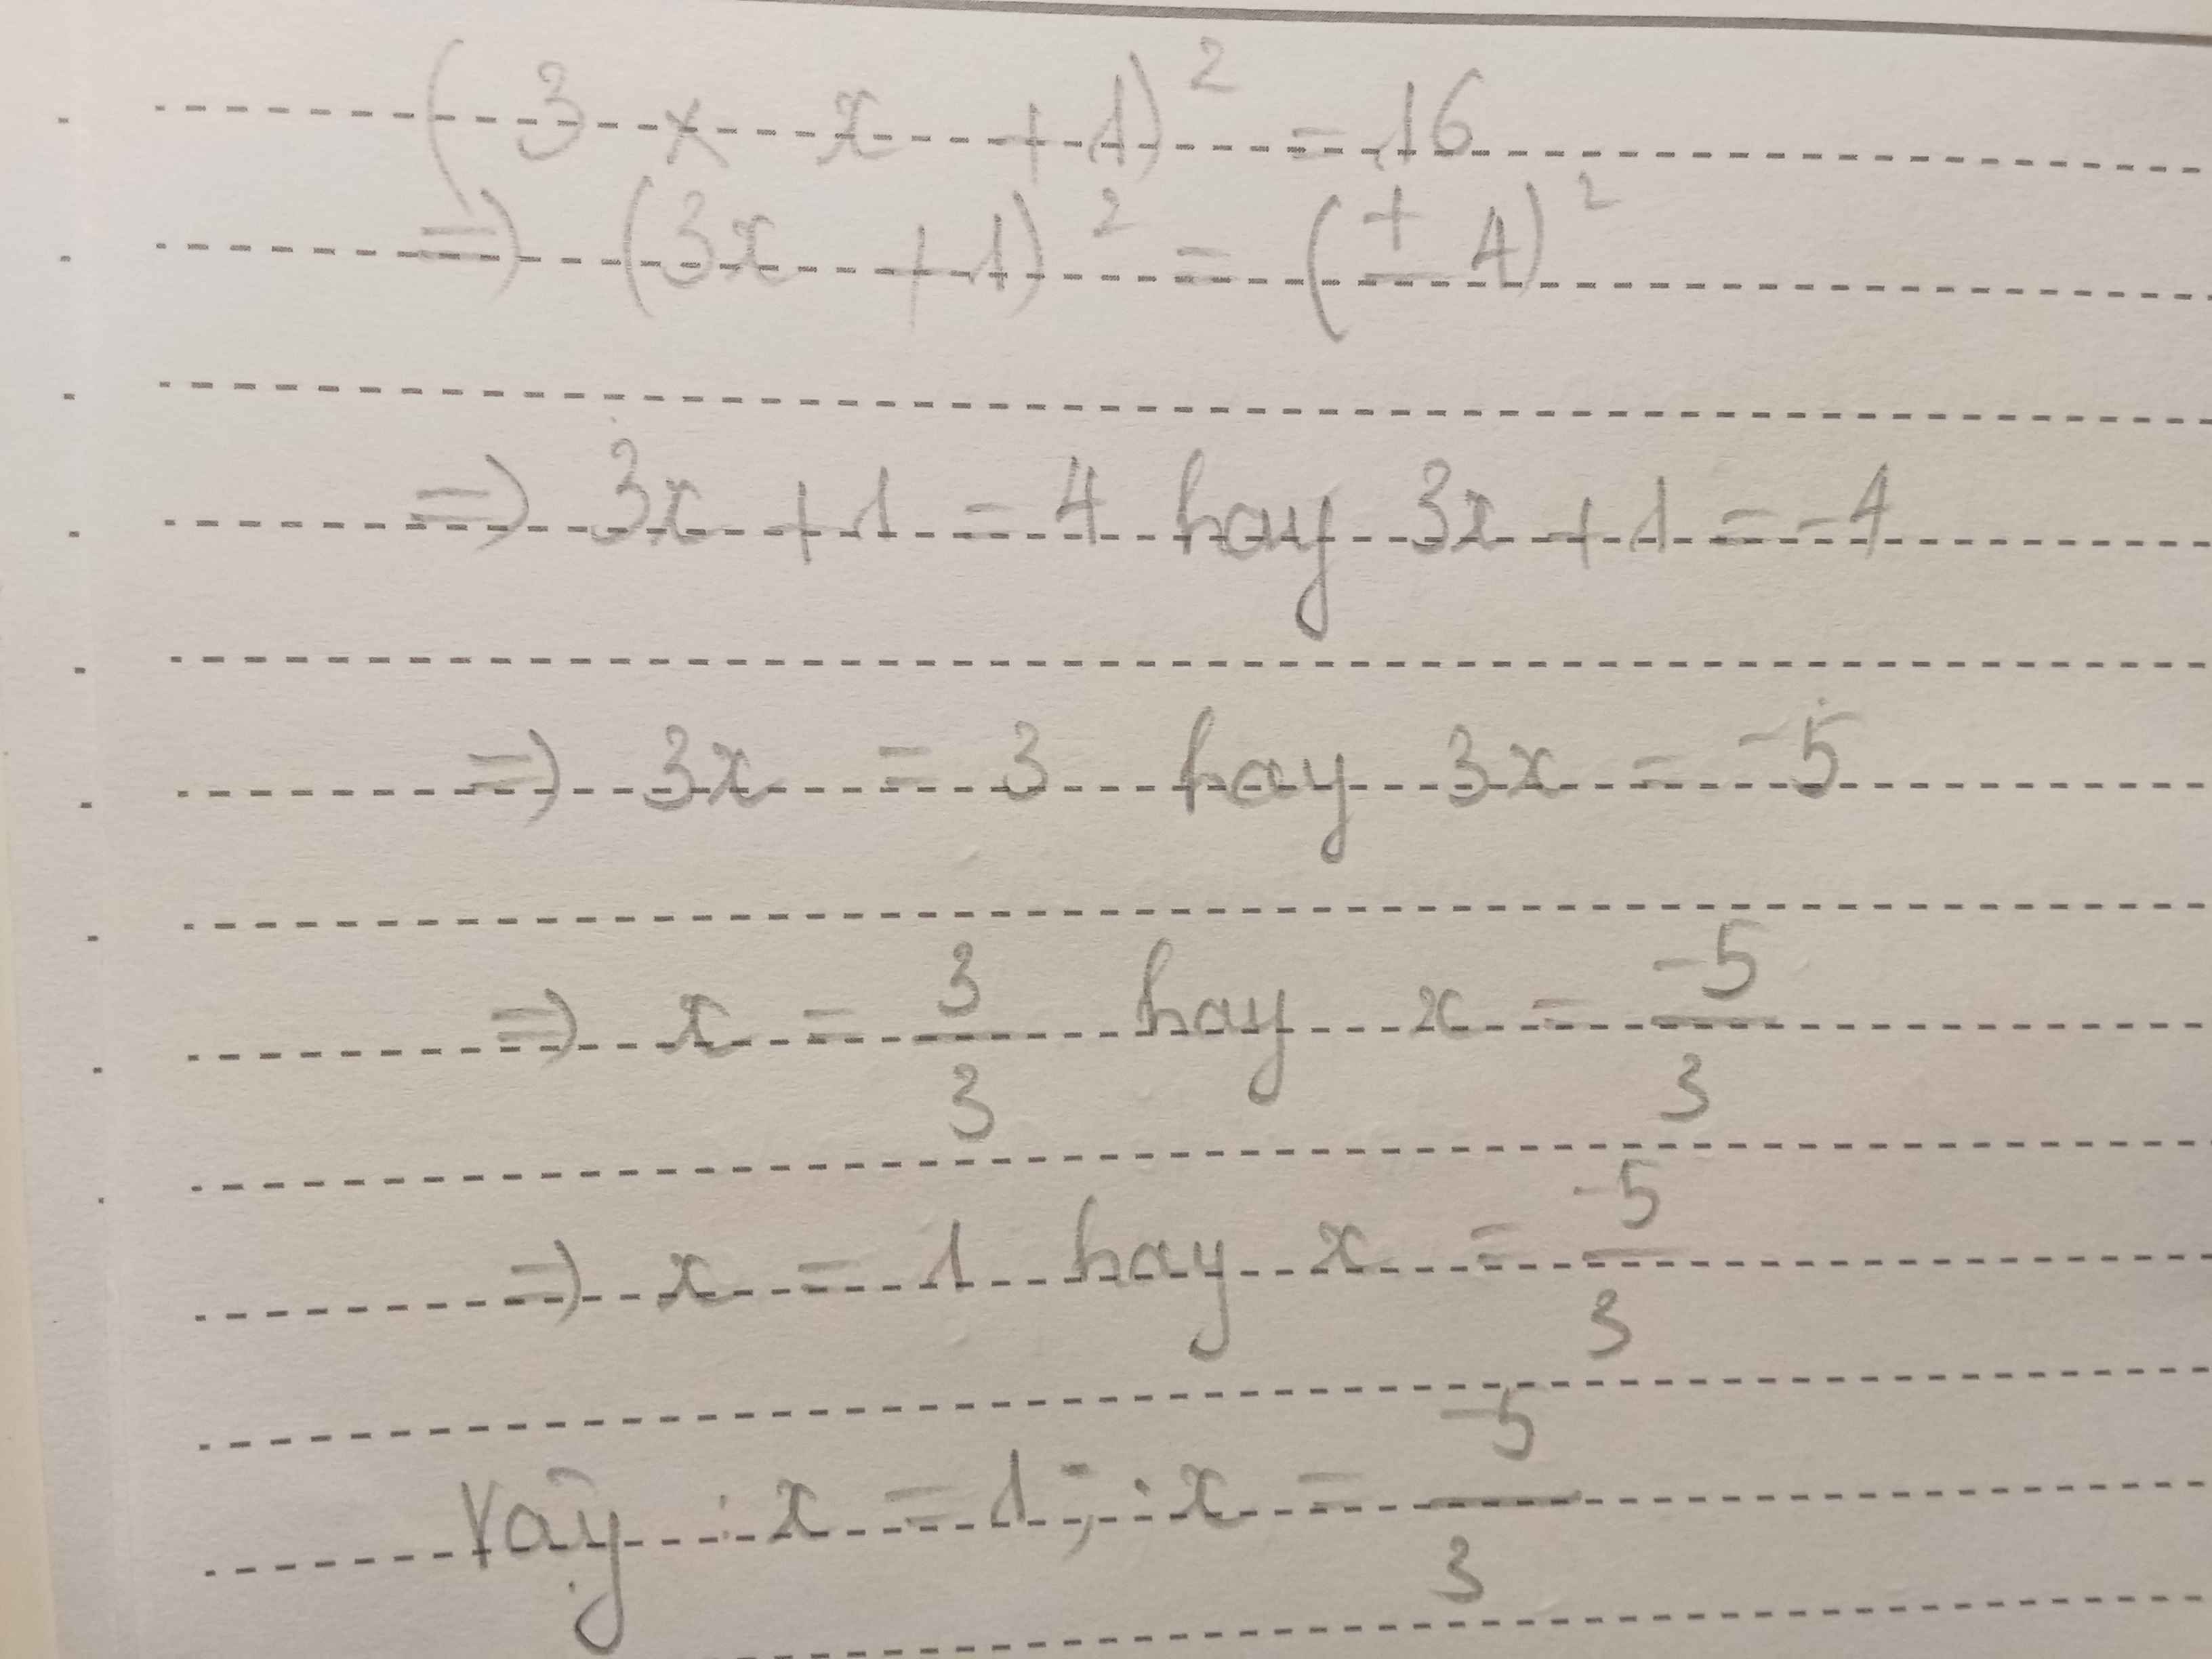 (3 × x + 1)² = 16
=> (3x + 1)² = (± 4)²
=> 3x + 1 = 4 hay 3x + 1 = -4
=> 3x = 3 hay 3x = -5
=> x = 3/3 hay x = -5/3
=> x = 1 hay x = -5/3
Vậy : x = 1 ; x = -5/3